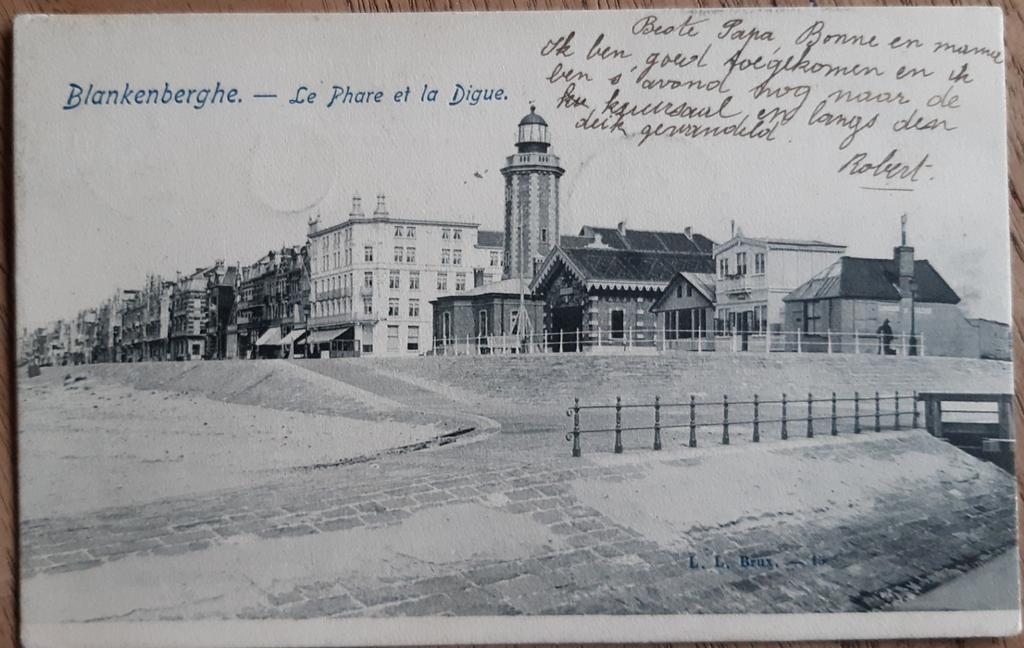 Blankenberghe. — Le Phare et la Digue.
Beste Papa Bonne en mama
Ik ben goed toegekomen en ik
ben s'avond nog naar de
kuursaal en langs den
deik gewandeld.
Robert.
L. L. Brux. — 15